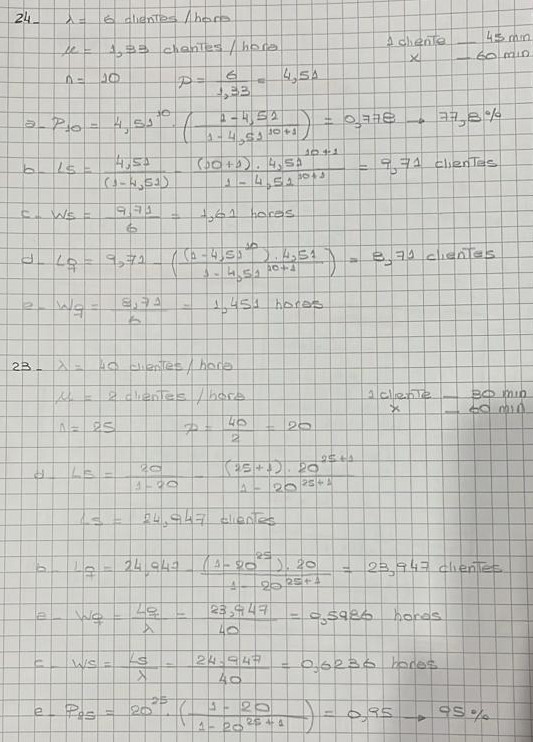 24- λ = 6 clientes / hora
μ = 1,33 clientes / hora 1 cliente — 45 min
x — 60 min
n = 10 ρ = 6/1,33 = 4,51
a- P10 = 4,51^10 . ( (1-4,51)/(1-4,51^(10+1)) ) = 0,778 → 77,8%
b- Ls = 4,51/(1-4,51) - ((10+1) . 4,51^(10+1))/(1-4,51^(10+1)) = 9,71 clientes
c- Ws = 9,71/6 = 1,61 horas
d- Lq = 9,71 - ( ((1-4,51^10) . 4,51)/(1-4,51^(10+1)) ) = 8,71 clientes
e- Wq = 8,71/6 = 1,451 horas
23- λ = 40 clientes / hora
μ = 2 clientes / hora 1 cliente — 30 min
x — 60 min
n = 25 ρ = 40/2 = 20
d- Ls = 20/(1-20) - ((25+1) . 20^(25+1))/(1-20^(25+1))
Ls = 24,947 clientes
b- Lq = 24,947 - ((1-20^25) . 20)/(1-20^(25+1)) = 23,947 clientes
a- Wq = Lq/λ = 23,947/40 = 0,5986 horas
c- Ws = Ls/λ = 24,947/40 = 0,6236 horas
e- P25 = 20^25 . ( (1-20)/(1-20^(25+1)) ) = 0,95 → 95%